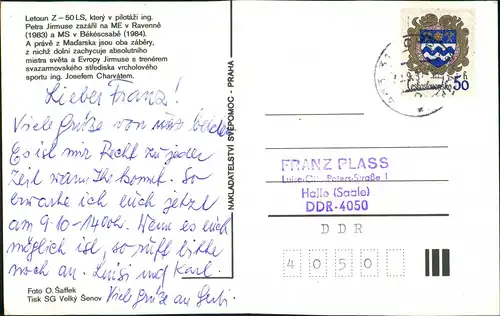 Letoun Z – 50 LS, který v pilotáži ing.
Petra Jirmuse zazářil na ME v Ravenně
(1983) a MS v Békéscsabě (1984).
A právě z Maďarska jsou oba záběry,
z nichž dolní zachycuje absolutního
mistra světa a Evropy Jirmuse s trenérem
svazarmovského střediska vrcholového
sportu ing. Josefem Charvátem.
Lieber Franz!
Viele Grüße von uns beiden
Es ist mir Recht zu jeder
Zeit wann Ihr kommt. So
erwarte ich euch jetzt
am 9.10 - 1400h. Wenn es euch
möglich ist, so ruft bitte
noch an. Luisi und Karl.
Viele Grüße an
Foto O. Šaffek
Tisk SG Velký Šenov
NAKLADATELSTVÍ SVÉPOMOC - PRAHA
Československo 50 h
FRANZ PLASS
Luise-Otto-Peters-Straße 1
Halle (Saale)
DDR-4050
DDR
4050